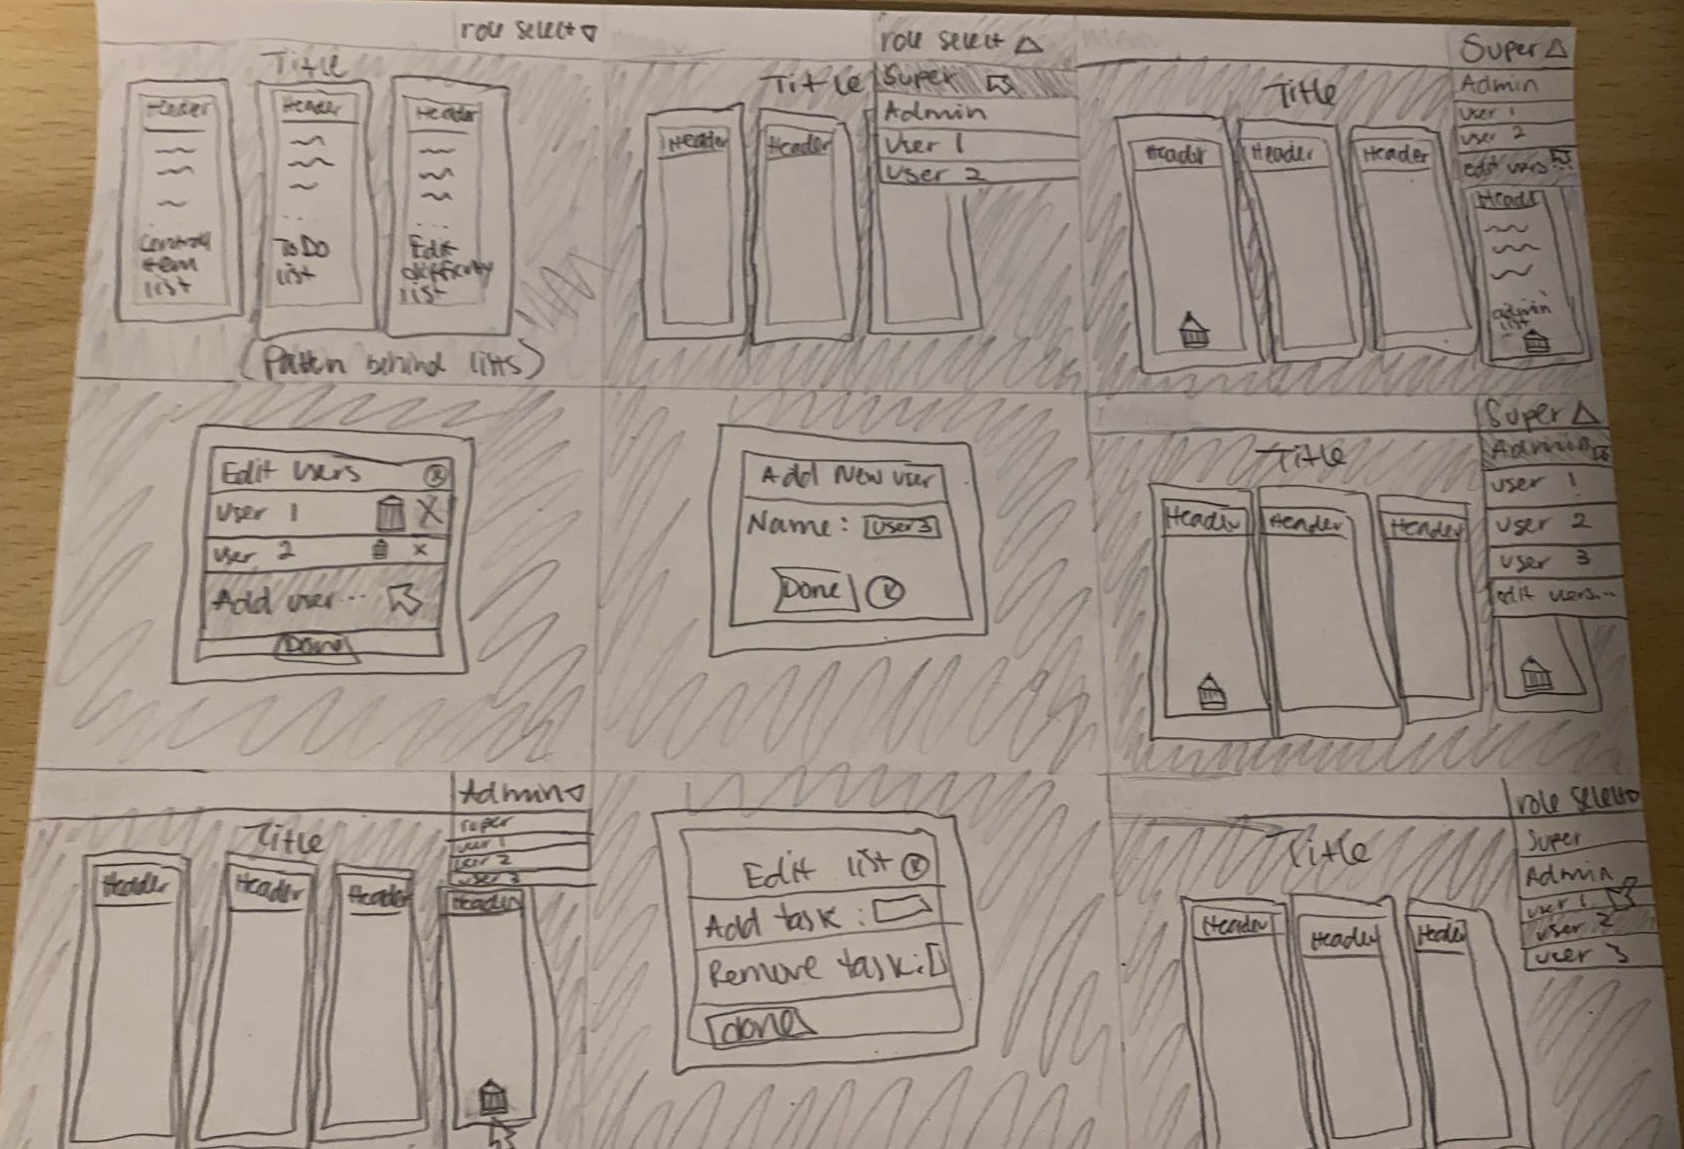 role select ▽
Title
Header
Header
Header
Central
item
list
ToDo
list
Edit
difficulty
list
(Pattern behind lists)
role select △
Title
Super
Admin
User 1
User 2
Header
Header
Super △
Title
Admin
User 1
User 2
edit users...
Header
Header
Header
Header
admin
list
Edit users X
User 1 X
User 2 x
Add user...
Done
Add New user
Name: User 3
Done X
Super △
Title
Admin
User 1
User 2
User 3
edit users...
Header
Header
Header
Admin ▽
Title
super
user 1
user 2
user 3
Header
Header
Header
Header
Edit list X
Add task:
Remove task:
done
role select ▽
Title
Super
Admin
user 1
user 2
user 3
Header
Header
Header